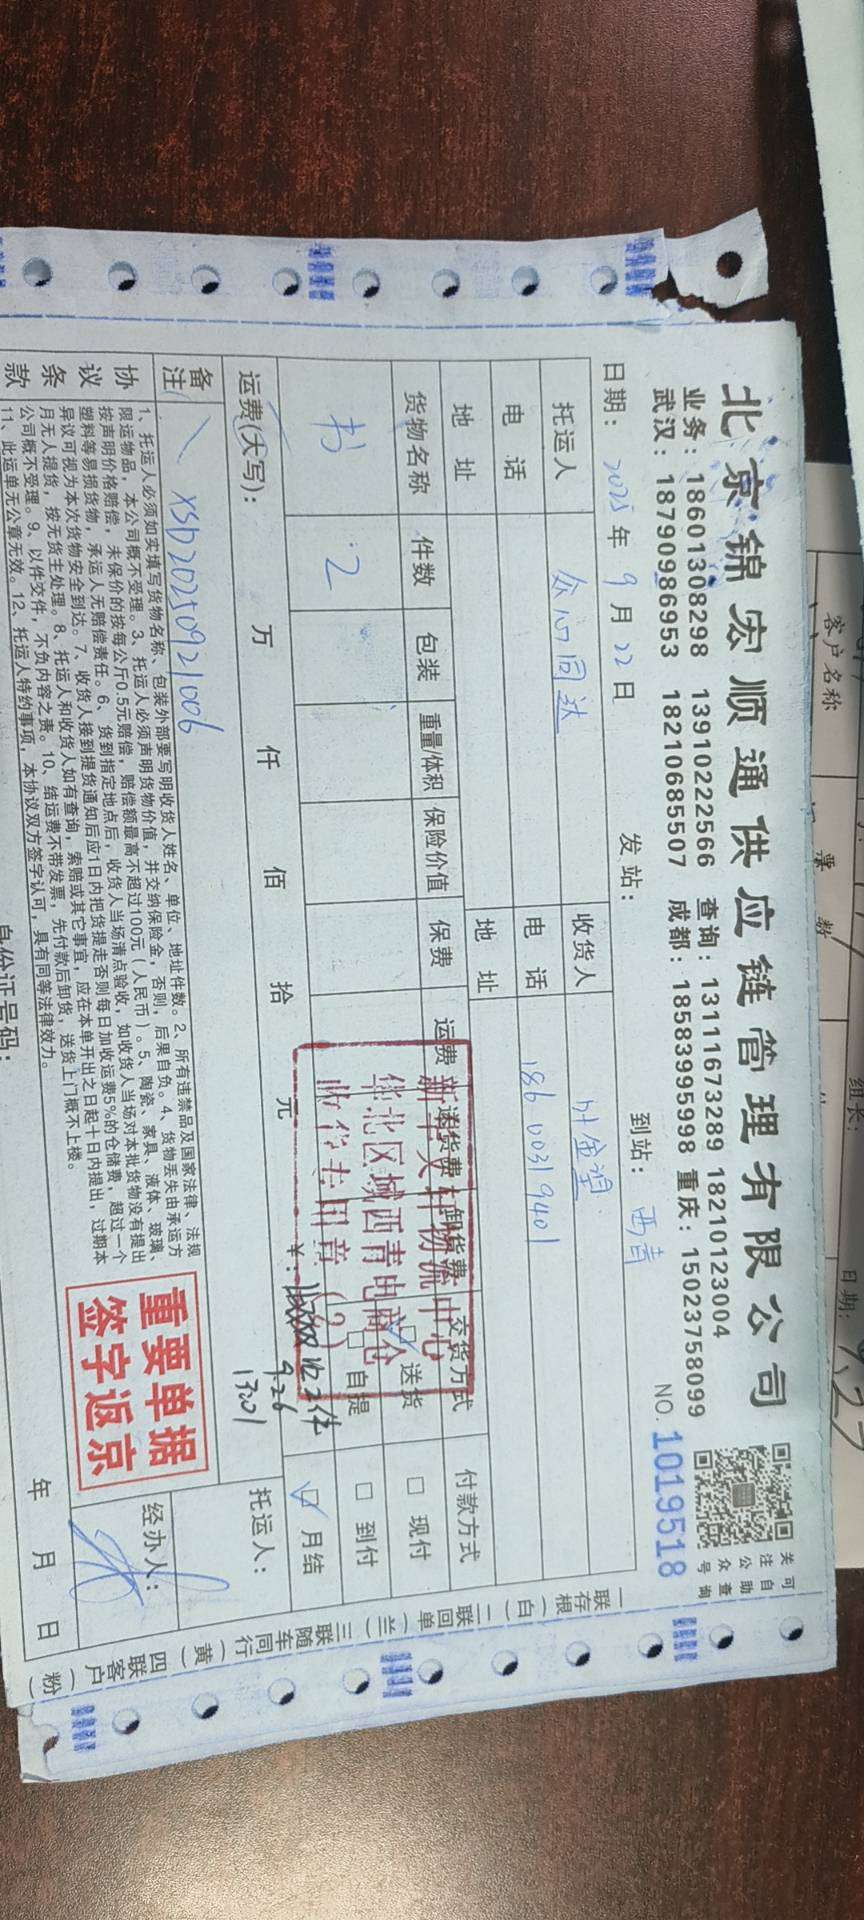 北京锦宏顺通供应链管理有限公司
可自助查询
关注公众号
业务：18601308298 13910222566 查询：13111673289 18210123004
武汉：18790986953 18210685507 成都：18583995998 重庆：15023758099
NO. 1019518
日期：2025年9月22日 发站： 到站：西青
托运人 众心同达 收货人
电话 电话 18600319401
地址 地址
货物名称 件数 包装 重量/体积 保险价值 保费 运费 送货费 卸货费 交货方式 付款方式
书 2 送货 自提 现付 到付 月结
新华文轩物流中心
华北区域西青电商仓
收货专用章(2)
运费(大写)： 万 仟 佰 拾 元 ￥：
收2件
9.26
13:01
备注 XSD20250921006
托运人：
协议条款
1、托运人必须如实填写货物名称、包装外部要写明收货人姓名、单位、地址件数。2、所有违禁品及国家法律、法规
限运物品，本公司概不受理。3、托运人必须声明货物价值，并交纳保险金，否则，后果自负。4、货物丢失由承运方
按声明价格赔偿，未保价的按每公斤0.5元赔偿，赔偿额最高不超过100元（人民币）。5、陶瓷、家具、液体、玻璃、
塑料等易损货物，承运人无赔偿责任。6、货到指定地点后，收货人当场清点验收，如收货人当场对本批货物没有提出
异议可视为本次货物安全到达。7、收货人接到提货通知后应1日内把货提走否则每日加收运费5%的仓储费，超过一个
月无人提货，按无货主处理。8、托运人和收货人如有查询，索赔或其它事宜，应在本单开出之日起十日内提出，过期本
公司概不受理。9、以件交件，不负内容之责。10、结运费不带发票，先付款后卸货，送货上门概不上楼。
11、此运单无公章无效。12、托运人特约事项，本协议双方签字认可，具有同等法律效力。
重要单据
签字返京
经办人：
年 月 日
身份证号码：
一联存根（白）二联回单（兰）三联随车同行（黄）四联客户（粉）
客户名称
组长
日期：
9.27